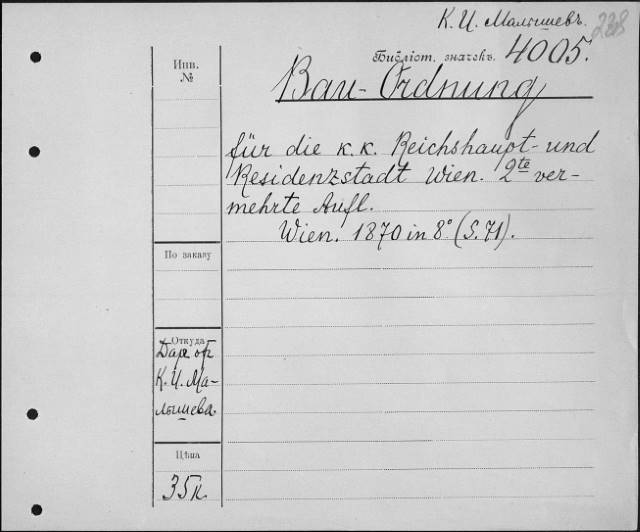 К. И. Малышевъ. 238
Библіот. значекъ. 4005.
Инв.
№
Bau-Ordnung
für die k.k. Reichshaupt- und
Residenzstadt Wien. 2te ver-
mehrte Aufl.
Wien. 1870 in 8° (S. 71).
По заказу
Откуда
Даръ от
К. И. Ма-
лышева.
Цѣна
35 к.